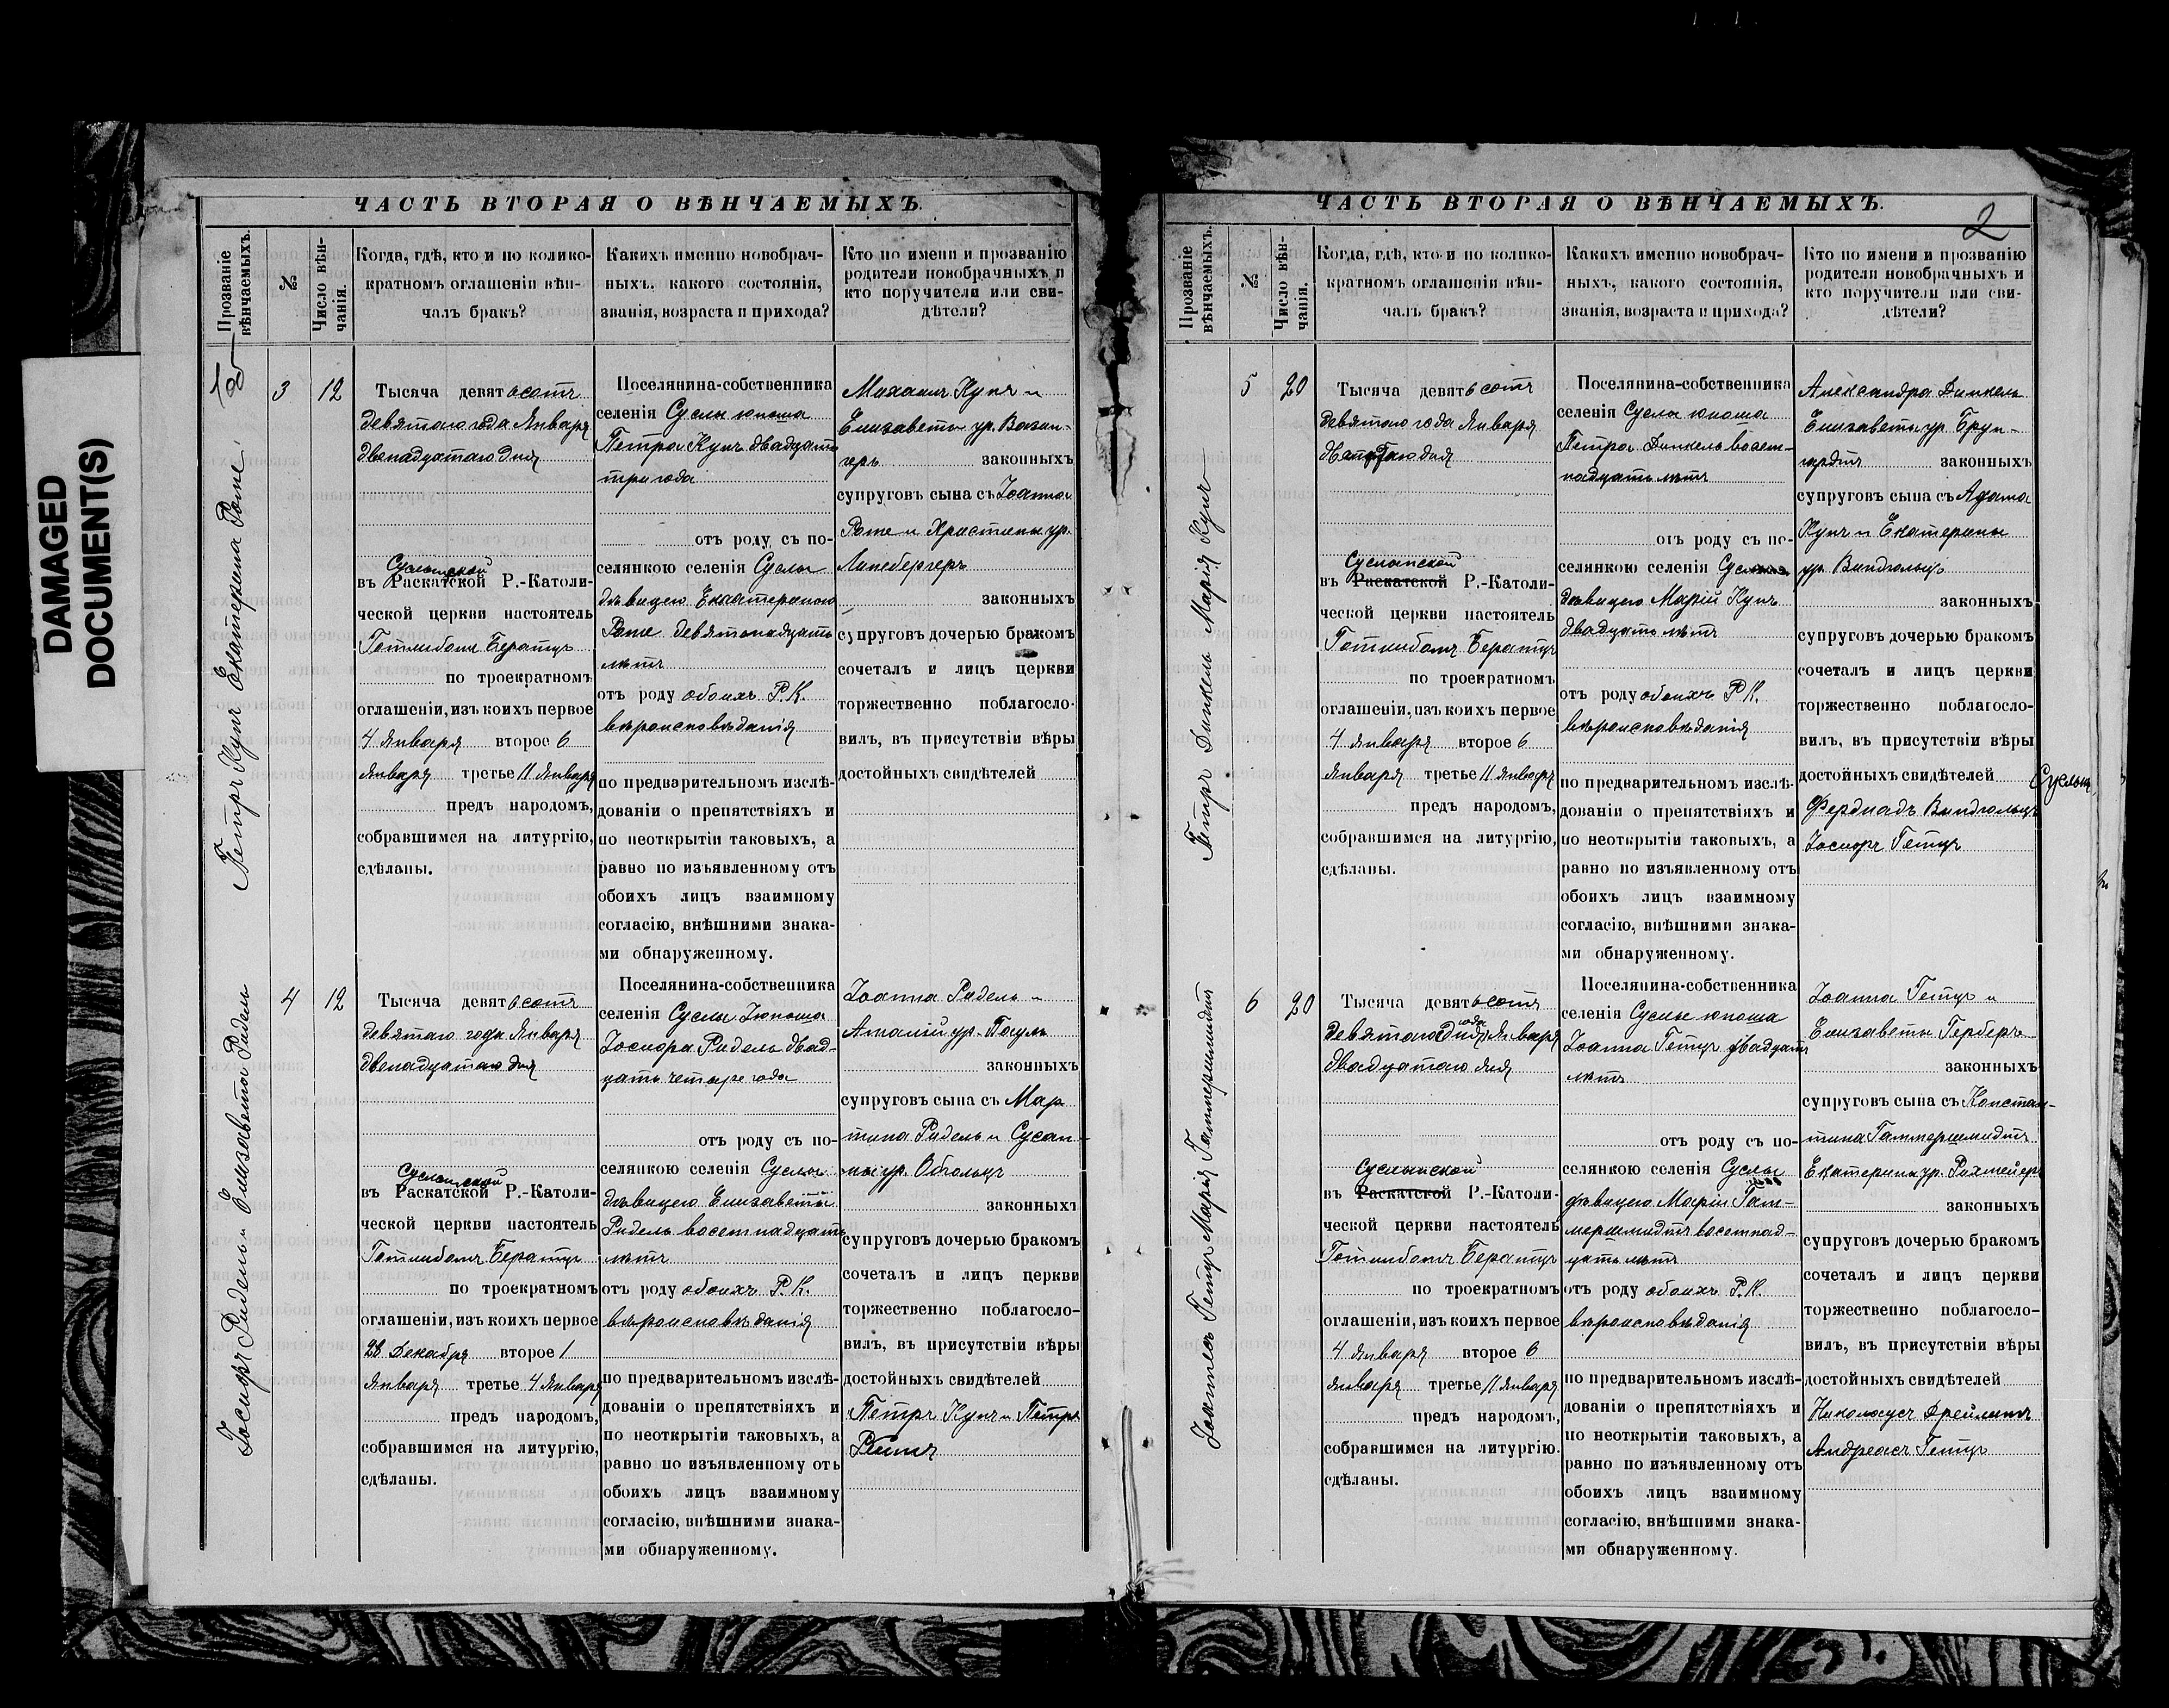 DAMAGED
DOCUMENT(S)
ЧАСТЬ ВТОРАЯ О ВѢНЧАЕМЫХЪ.
Прозваніе вѣнчаемыхъ.
№
Число вѣн-
чанія.
Когда, гдѣ, кто и по колико-
кратномъ оглашеніи вѣн-
чалъ бракъ?
Какихъ именно новобрач-
ныхъ, какого состоянія,
званія, возраста и прихода?
Кто по имени и прозванію
родители новобрачныхъ и
кто поручители или сви-
дѣтели?
Петръ Купъ Екатерина Роте
3
12
Тысяча девятьсотъ
девятаго года Января
двенадцатаго дня
Суслынской
въ Раскатской Р.-Католи-
ческой церкви настоятель
Готлибъ Берацъ
по троекратномъ
оглашеніи, изъ коихъ первое
4 Января второе 6
Января третье 11 Января
предъ народомъ,
собравшимся на литургію,
сдѣланы.
Поселянина-собственника
селенія Суслы юноша
Петра Купъ двадцать
три года
отъ роду съ по-
селянкою селенія Суслы
дѣвицею Екатериною
Роте девятнадцать
лѣтъ
отъ роду обоихъ Р. К.
вѣроисповѣданія
по предварительномъ изслѣ-
дованіи о препятствіяхъ и
по неоткрытіи таковыхъ, а
равно по изъявленному отъ
обоихъ лицъ взаимному
согласію, внѣшними знака-
ми обнаруженному.
Михаилъ Купъ и
Елизаветы ур. Вагин-
геръ законныхъ
супруговъ сына съ Іоанна
Роте и Христины ур.
Линебергеръ
законныхъ
супруговъ дочерью бракомъ
сочеталъ и лицъ церкви
торжественно поблагосло-
вилъ, въ присутствіи вѣры
достойныхъ свидѣтелей
Іосифъ Ридель и Елизавета Ридель
4
12
Тысяча девятьсотъ
девятаго года Января
двенадцатаго дня
Суслынской
въ Раскатской Р.-Католи-
ческой церкви настоятель
Готлибъ Берацъ
по троекратномъ
оглашеніи, изъ коихъ первое
28 Декабря второе 1
Января третье 4 Января
предъ народомъ,
собравшимся на литургію,
сдѣланы.
Поселянина-собственника
селенія Суслы Юноша
Іосифа Ридель двад-
цать четыре года
отъ роду съ по-
селянкою селенія Суслы
дѣвицею Елизаветы
Ридель восемнадцать
лѣтъ
отъ роду обоихъ Р. К.
вѣроисповѣданія
по предварительномъ изслѣ-
дованіи о препятствіяхъ и
по неоткрытіи таковыхъ, а
равно по изъявленному отъ
обоихъ лицъ взаимному
согласію, внѣшними знака-
ми обнаруженному.
Іоанна Ридель и
Амаліи ур. Пауль
законныхъ
супруговъ сына съ Мар-
тина Ридель и Сусан-
ны ур. Обгольцъ
законныхъ
супруговъ дочерью бракомъ
сочеталъ и лицъ церкви
торжественно поблагосло-
вилъ, въ присутствіи вѣры
достойныхъ свидѣтелей
Петръ Купъ и Петръ
ЧАСТЬ ВТОРАЯ О ВѢНЧАЕМЫХЪ.
2
Прозваніе вѣнчаемыхъ.
№
Число вѣн-
чанія.
Когда, гдѣ, кто и по колико-
кратномъ оглашеніи вѣн-
чалъ бракъ?
Какихъ именно новобрач-
ныхъ, какого состоянія,
званія, возраста и прихода?
Кто по имени и прозванію
родители новобрачныхъ и
кто поручители или сви-
дѣтели?
Петръ Динкель Марія Купъ
5
20
Тысяча девятьсотъ
девятаго года Января
дня
Суслынской
въ Раскатской Р.-Католи-
ческой церкви настоятель
Готлибъ Берацъ
по троекратномъ
оглашеніи, изъ коихъ первое
4 Января второе 6
Января третье 11 Января
предъ народомъ,
собравшимся на литургію,
сдѣланы.
Поселянина-собственника
селенія Суслы юноша
Петра Динкель восем-
надцать лѣтъ
отъ роду съ по-
селянкою селенія Суслы
дѣвицею Маріи Купъ
двадцать лѣтъ
отъ роду обоихъ Р. К.
вѣроисповѣданія
по предварительномъ изслѣ-
дованіи о препятствіяхъ и
по неоткрытіи таковыхъ, а
равно по изъявленному отъ
обоихъ лицъ взаимному
согласію, внѣшними знака-
ми обнаруженному.
Александра Динкель
Елизаветы ур. Брун-
гардтъ законныхъ
супруговъ сына съ Адама
Купъ и Екатерины
ур. Виндгольцъ
законныхъ
супруговъ дочерью бракомъ
сочеталъ и лицъ церкви
торжественно поблагосло-
вилъ, въ присутствіи вѣры
достойныхъ свидѣтелей
Фердинадъ Виндгольцъ
Іосифъ Гетцъ
Іоаннесъ Гетцъ Марія Гаммершмидтъ
6
20
Тысяча девятьсотъ
девятаго года Января
двадцатаго дня
Суслынской
въ Раскатской Р.-Католи-
ческой церкви настоятель
Готлибъ Берацъ
по троекратномъ
оглашеніи, изъ коихъ первое
4 Января второе 6
Января третье 11 Января
предъ народомъ,
собравшимся на литургію.
сдѣланы.
Поселянина-собственника
селенія Суслы юноша
Іоанна Гетцъ двадцать
лѣтъ
отъ роду съ по-
селянкою селенія Суслы
дѣвицею Маріи Гам-
мершмидтъ восемнад-
цать лѣтъ
отъ роду обоихъ Р. К.
вѣроисповѣданія
по предварительномъ изслѣ-
дованіи о препятствіяхъ и
по неоткрытіи таковыхъ, а
равно по изъявленному отъ
обоихъ лицъ взаимному
согласію, внѣшними знака-
ми обнаруженному.
Іоанна Гетцъ и
Елизаветы Герберъ
законныхъ
супруговъ сына съ Констан-
тина Гаммершмидтъ
Екатерины ур. Рихмейеръ
законныхъ
супруговъ дочерью бракомъ
сочеталъ и лицъ церкви
торжественно поблагосло-
вилъ, въ присутствіи вѣры
достойныхъ свидѣтелей
Николаусъ Дрейлингъ
Андреасъ Гетцъ